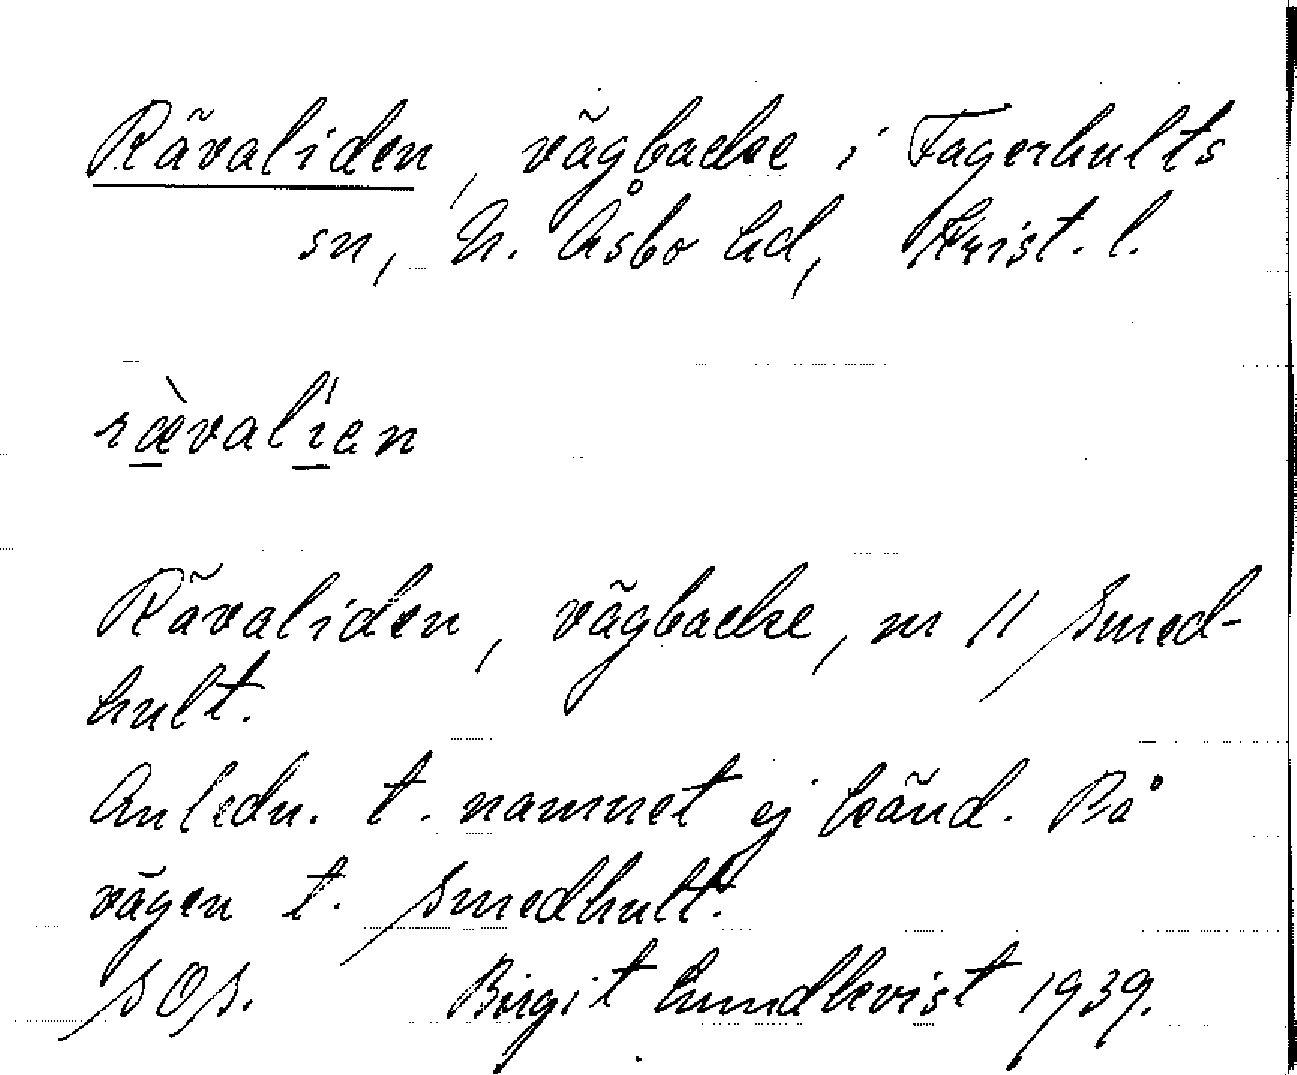 Rävaliden, vägbacke i Fagerhults
sn, N. Åsbo hd, Krist. l.
ræ̀valíen
Rävaliden, vägbacke, nr 11 Smed-
hult.
Anledn. t. namnet ej känd. På
vägen t. Smedhult.
SOS. Birgit Lundkvist 1939.